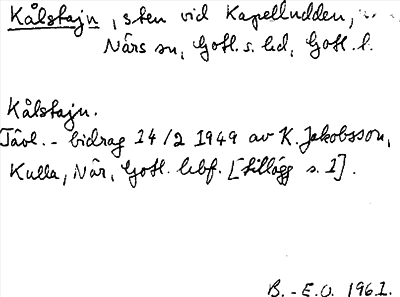 Kålstajn, sten vid Kapelludden,
Närs sn, Gotl. s. hd, Gotl. l.
Kålstajn.
Tävl. - bidrag 14/2 1949 av K. Jakobsson,
Kulla, När, Gotl. lbf. [tillägg s. 1].
B.-E.O. 1961.